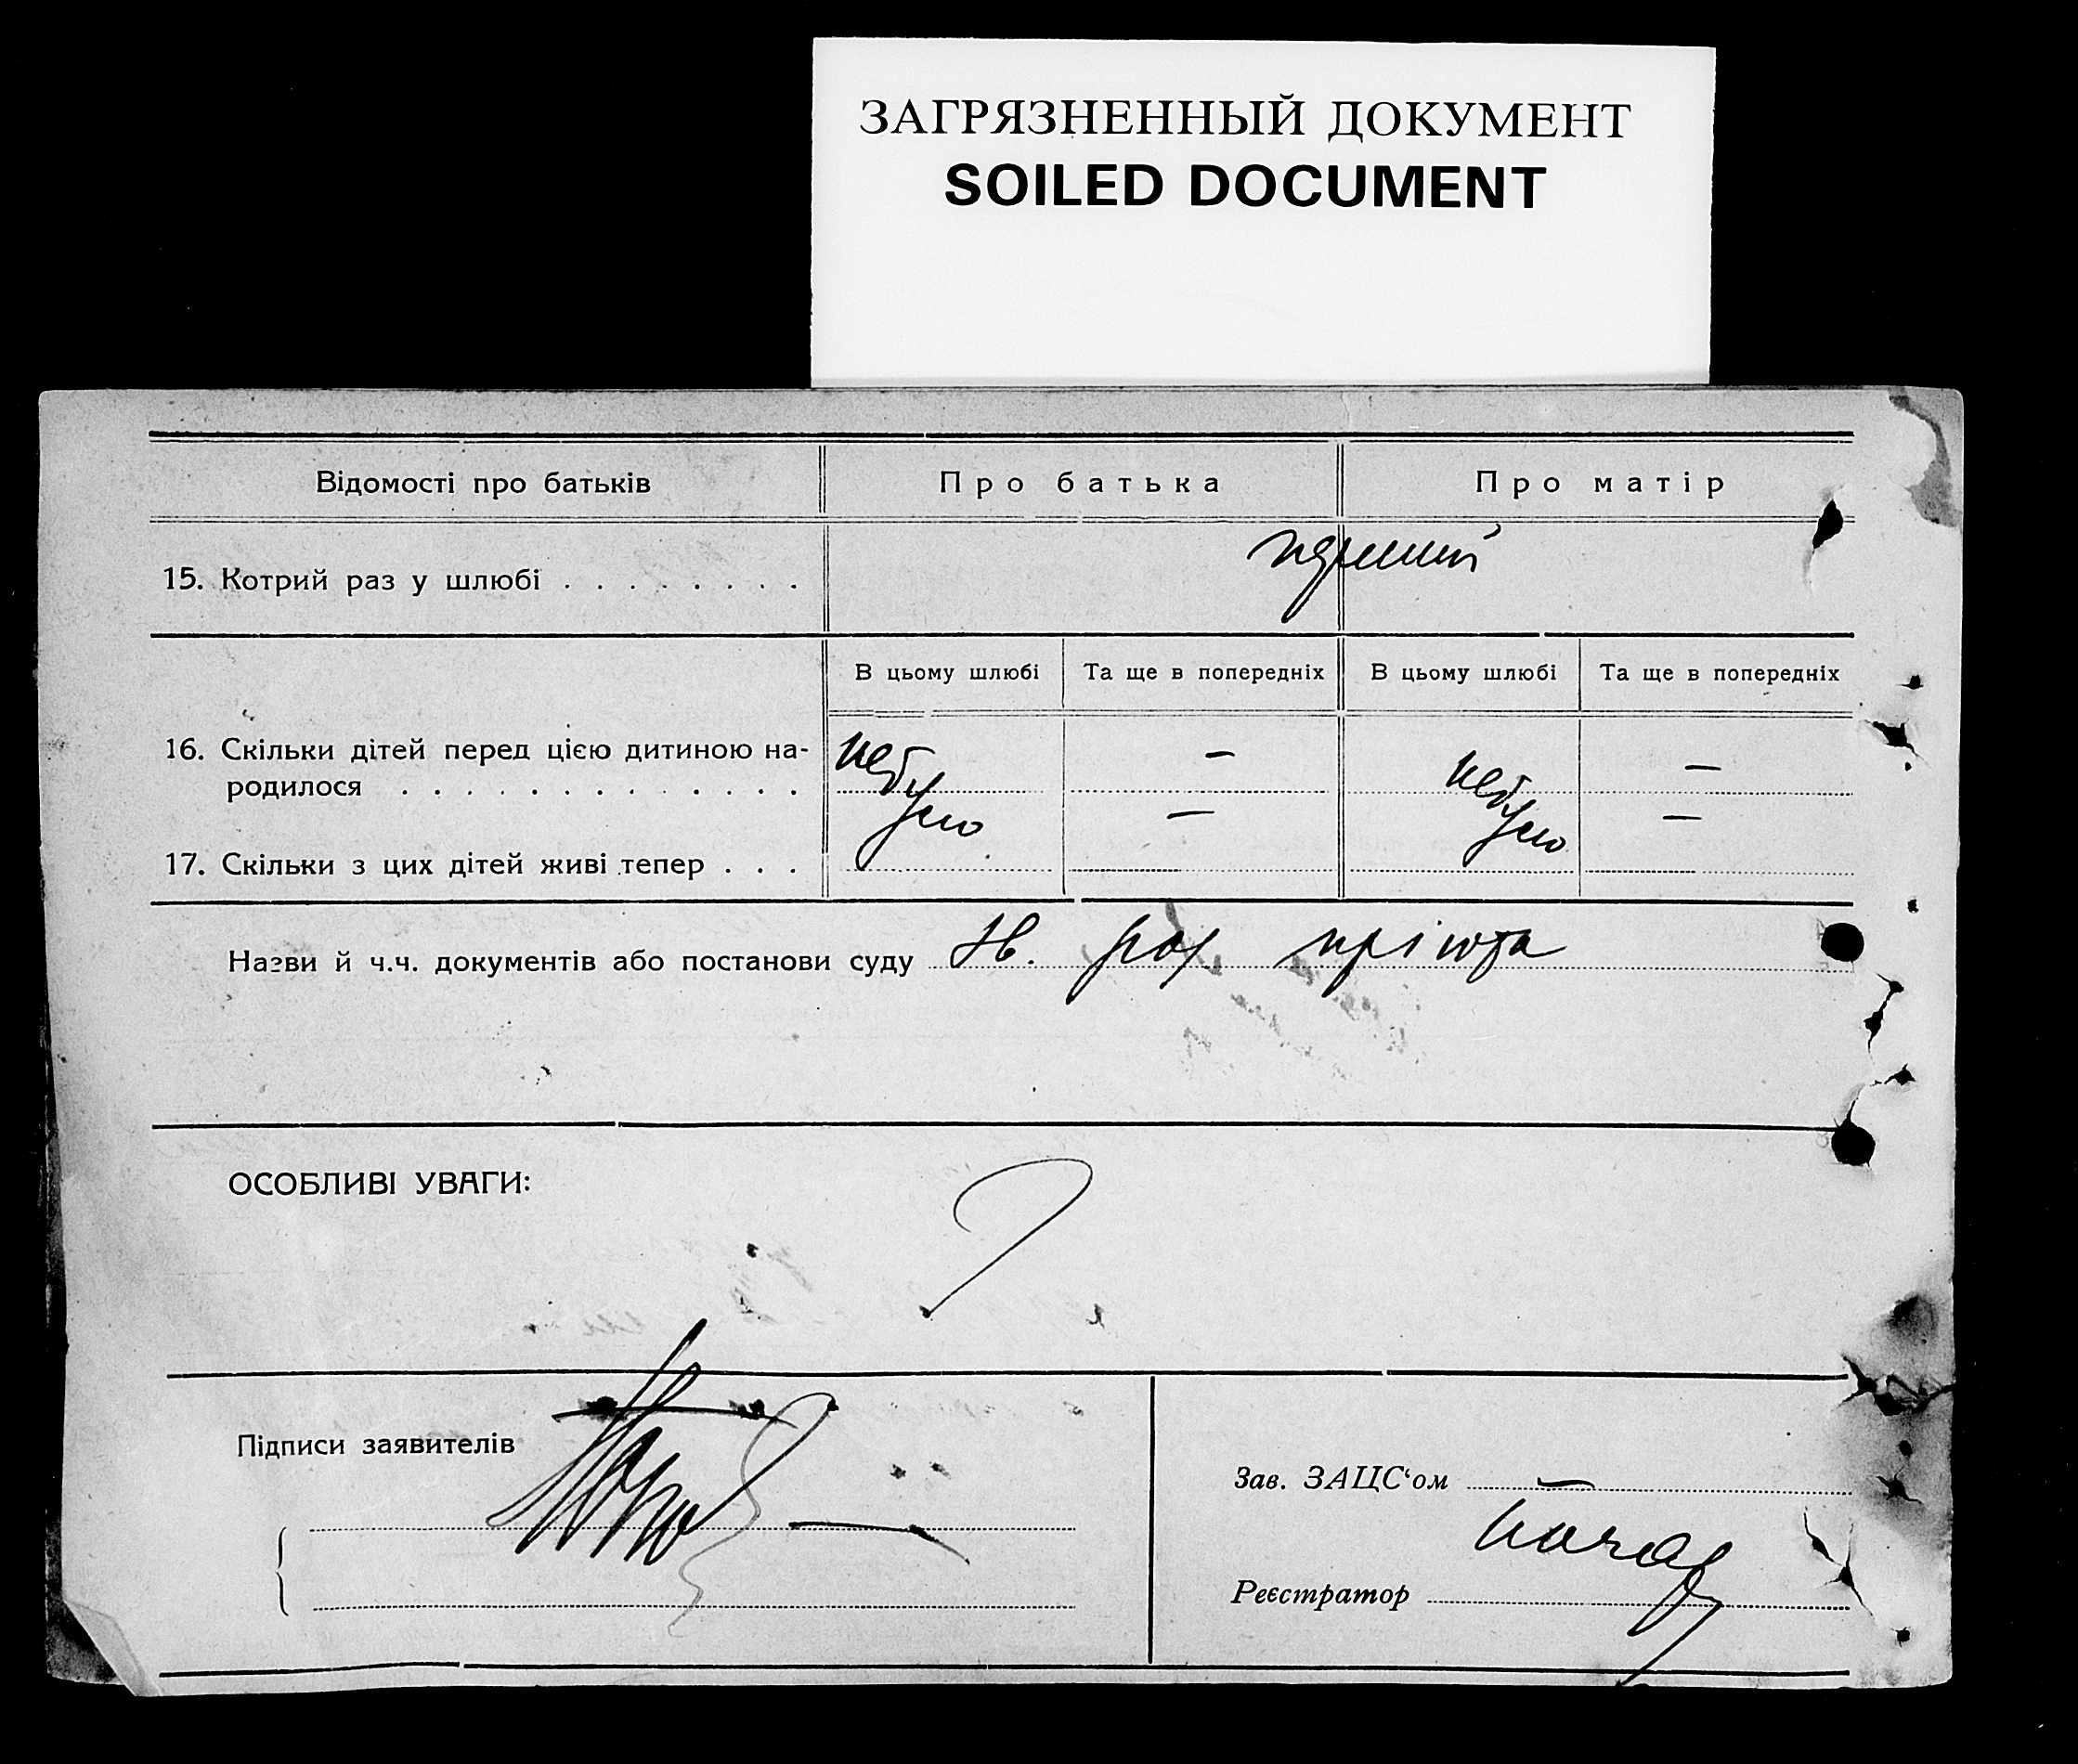 ЗАГРЯЗНЕННЫЙ ДОКУМЕНТ
SOILED DOCUMENT
Відомості про батьків Про батька Про матір
перший
15. Котрий раз у шлюбі . . . . . . . .
В цьому шлюбі Та ще в попередніх В цьому шлюбі Та ще в попередніх
16. Скільки дітей перед цією дитиною на- небуло — небуло —
родилося . . . . . . . . . . . . . — —
17. Скільки з цих дітей живі тепер . . .
Назви й ч.ч. документів або постанови суду
ОСОБЛИВІ УВАГИ:
Підписи заявителів
Зав. ЗАЦС‘ом —
Реєстратор